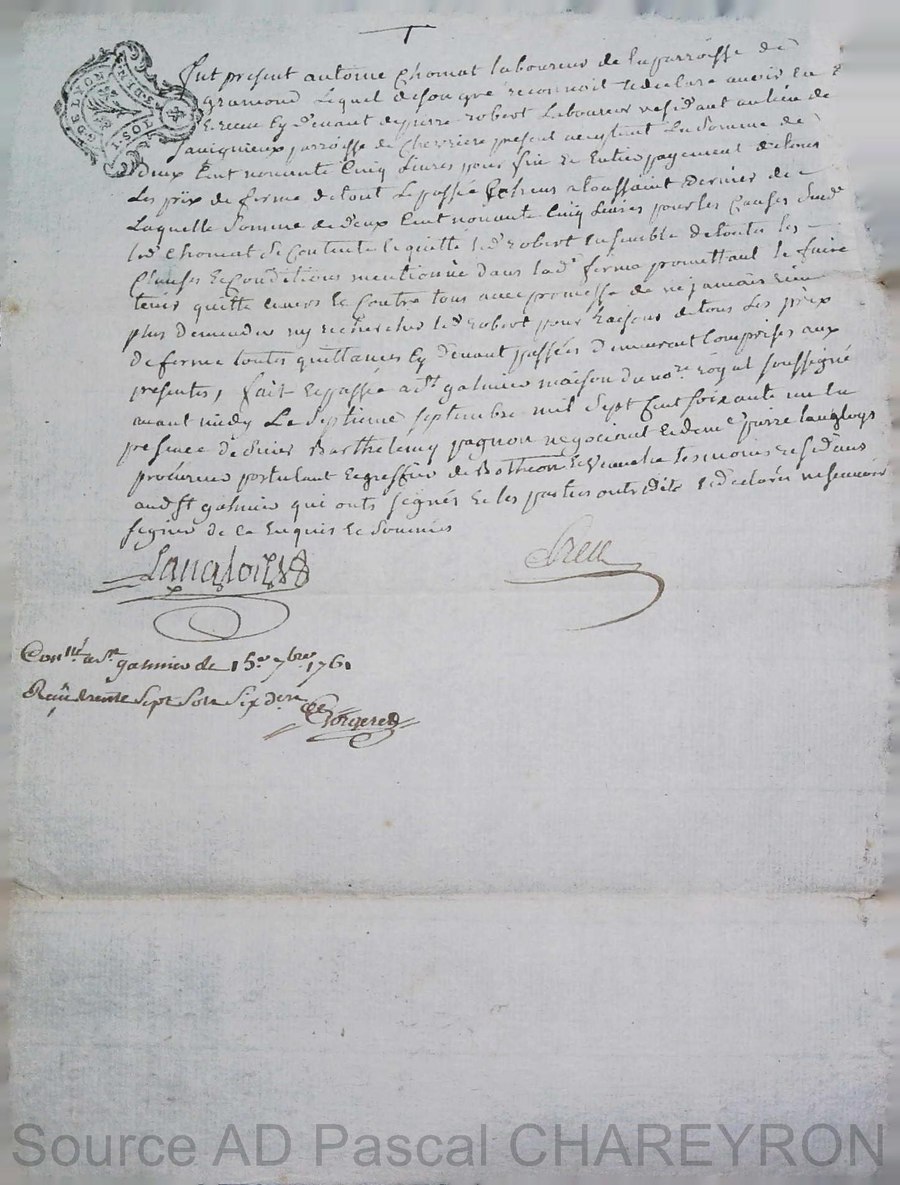 Fut present antoine Chomat laboureur de la parroisse de
gramond lequel de son gré reconnoit & declare avoir eu &
& receu cy devant de pierre robert laboureur residant au lieu de
savignieux parroisse de Cherriere present acceptant la somme de
deux Cent nonante Cinq livres pour fin & entier payement de tous
les prix de ferme de tout le passé echeus a toussaint dernier de
laquelle somme de deux Cent nonante Cinq livres pour les Causes susd.
led. Chomat se Contente & quitte led. robert ensemble de toutes les
Clauses & Conditions mentionné dans lad. ferme promettant le faire
tenir quitte envers & Contre tous avec promesse de ne jamais rien
plus demander ny rechercher led. robert pour raison de tous les prix
de ferme toutes quittances cy devant passées demeurant Comprises aux
presentes, fait & passé a st galmier maison du no.re royal soussigné
avant midy le septieme septembre mil sept Cent soixante un en
presence de sieur Barthelemy pagnon negociant & de me pierre langloys
procureur postulant & greffier de Botheon & Veauche tesmoins residans
aud st galmier qui onts signés & les parties ont dit & declarés ne scavoir
signer de ce enquis & sommés
Langlois
Con.llé a st galmier le 15.e 7bre 1761
Reçu trente sept sols six den.
GDELYON
1.SOL
S.DEN
Source AD Pascal CHAREYRON